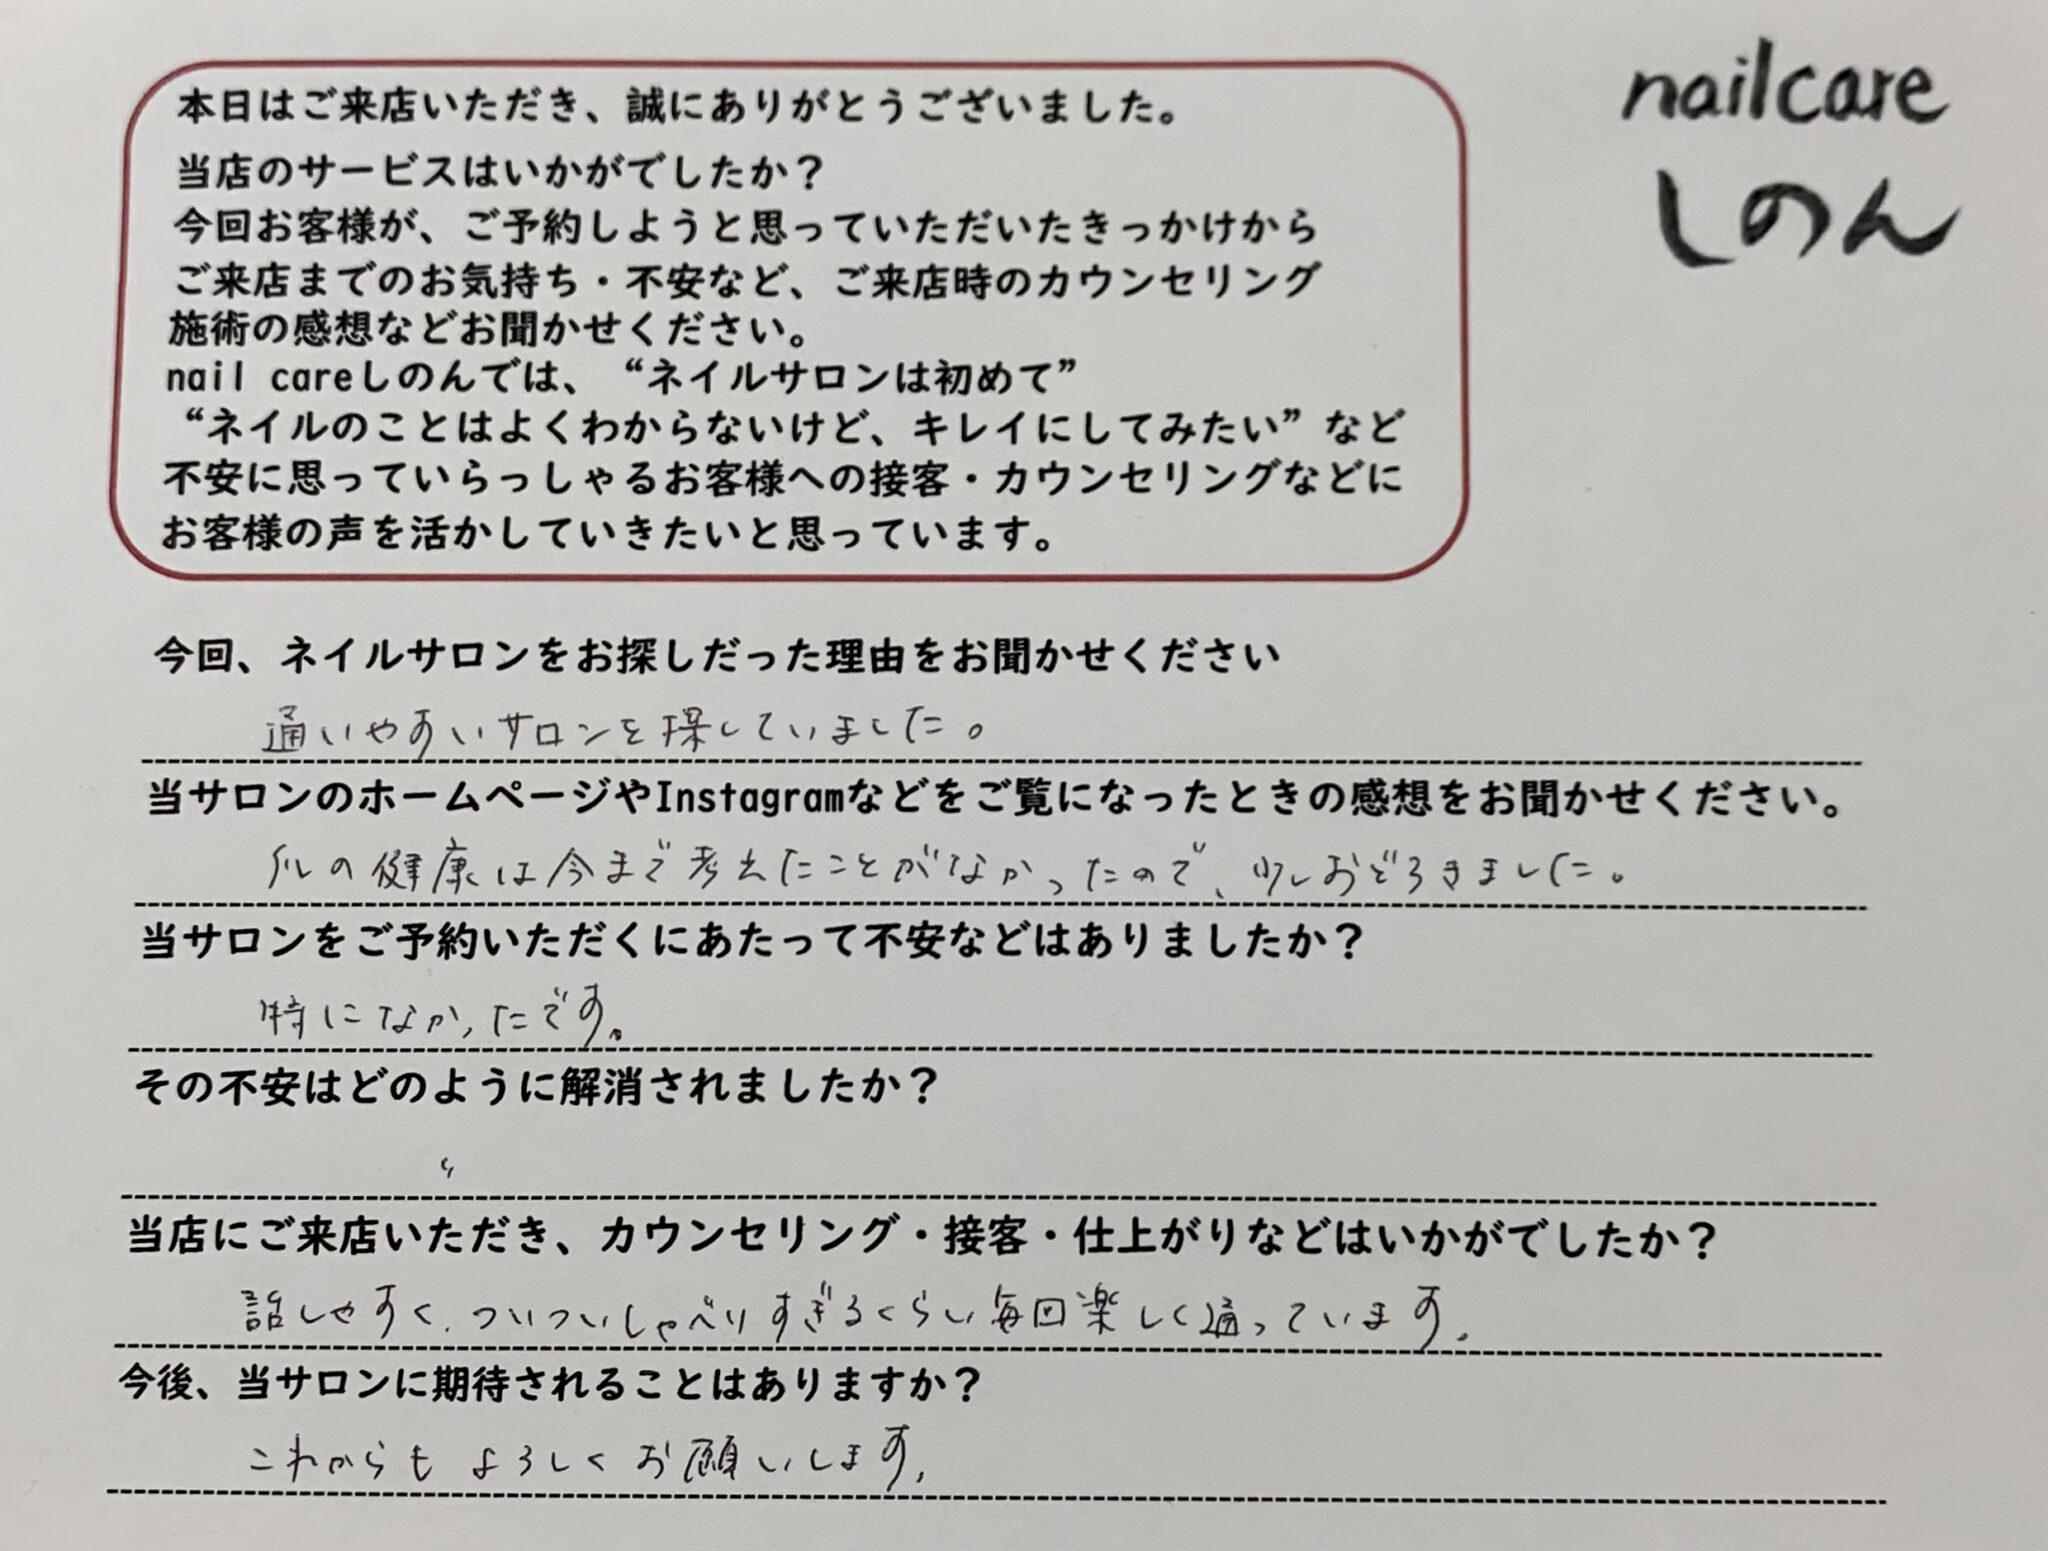 nailcare
しのん
本日はご来店いただき、誠にありがとうございました。
当店のサービスはいかがでしたか？
今回お客様が、ご予約しようと思っていただいたきっかけから
ご来店までのお気持ち・不安など、ご来店時のカウンセリング
施術の感想などお聞かせください。
nail careしのんでは、“ネイルサロンは初めて”
“ネイルのことはよくわからないけど、キレイにしてみたい”など
不安に思っていらっしゃるお客様への接客・カウンセリングなどに
お客様の声を活かしていきたいと思っています。
今回、ネイルサロンをお探しだった理由をお聞かせください
通いやすいサロンを探していました。
当サロンのホームページやInstagramなどをご覧になったときの感想をお聞かせください。
爪の健康は今まで考えたことがなかったので、少しおどろきました。
当サロンをご予約いただくにあたって不安などはありましたか？
特になかったです。
その不安はどのように解消されましたか？
〃
当店にご来店いただき、カウンセリング・接客・仕上がりなどはいかがでしたか？
話しやすく、ついついしゃべりすぎるくらい毎回楽しく通っています。
今後、当サロンに期待されることはありますか？
これからもよろしくお願いします。